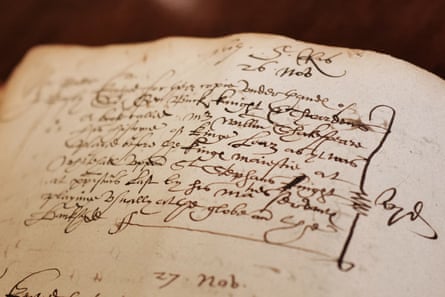 26 Nov
Entred for their copie under thandes of
Sr Geo. Buck knight & Thwardens
A booke called. Mr William Shakespeare
his historye of Kinge Lear as yt was
played before the kinges maiestie at
Whitehall uppon St Stephans night
at Christmas Last by his maties servantes
playinge usually at the globe on the
Banksyde vjd
27. Nov.